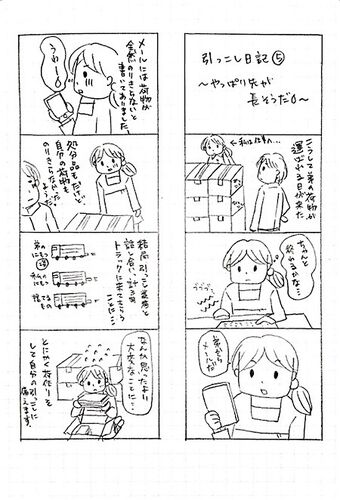 引っこし日記⑤
～やっぱり先が
長そうだ～
こうして弟の荷物が
運ばれる日が来た
←私は仕事へ…
ちゃんと
終わるかな…
弟から
メールだ
メールには荷物が
全然のりきらないと
書いてありました。
うわー
処分品もだけど
自分の荷物も
のりきらなかった
結局引っこし業者と
話し合い、計3回
トラックに来てもらう
ことに…
弟の
にもつ
私の
にもつ
捨てる
もの
なんか思ったより
大変なことに…
とにかく荷作りを
して自分の引っこしに
備えます。